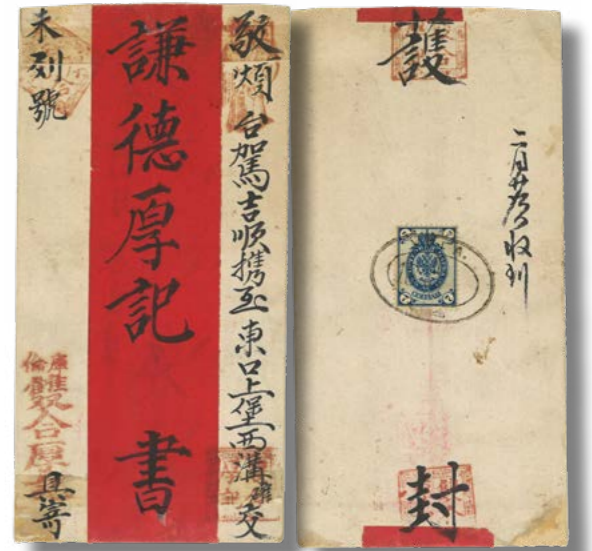 敬煩
台駕吉順攜至東口上堡西溝確交
謙德厚記
書
未列號
庫倫
雙合厚
具寄
護
二月廿 收到
7 7
封